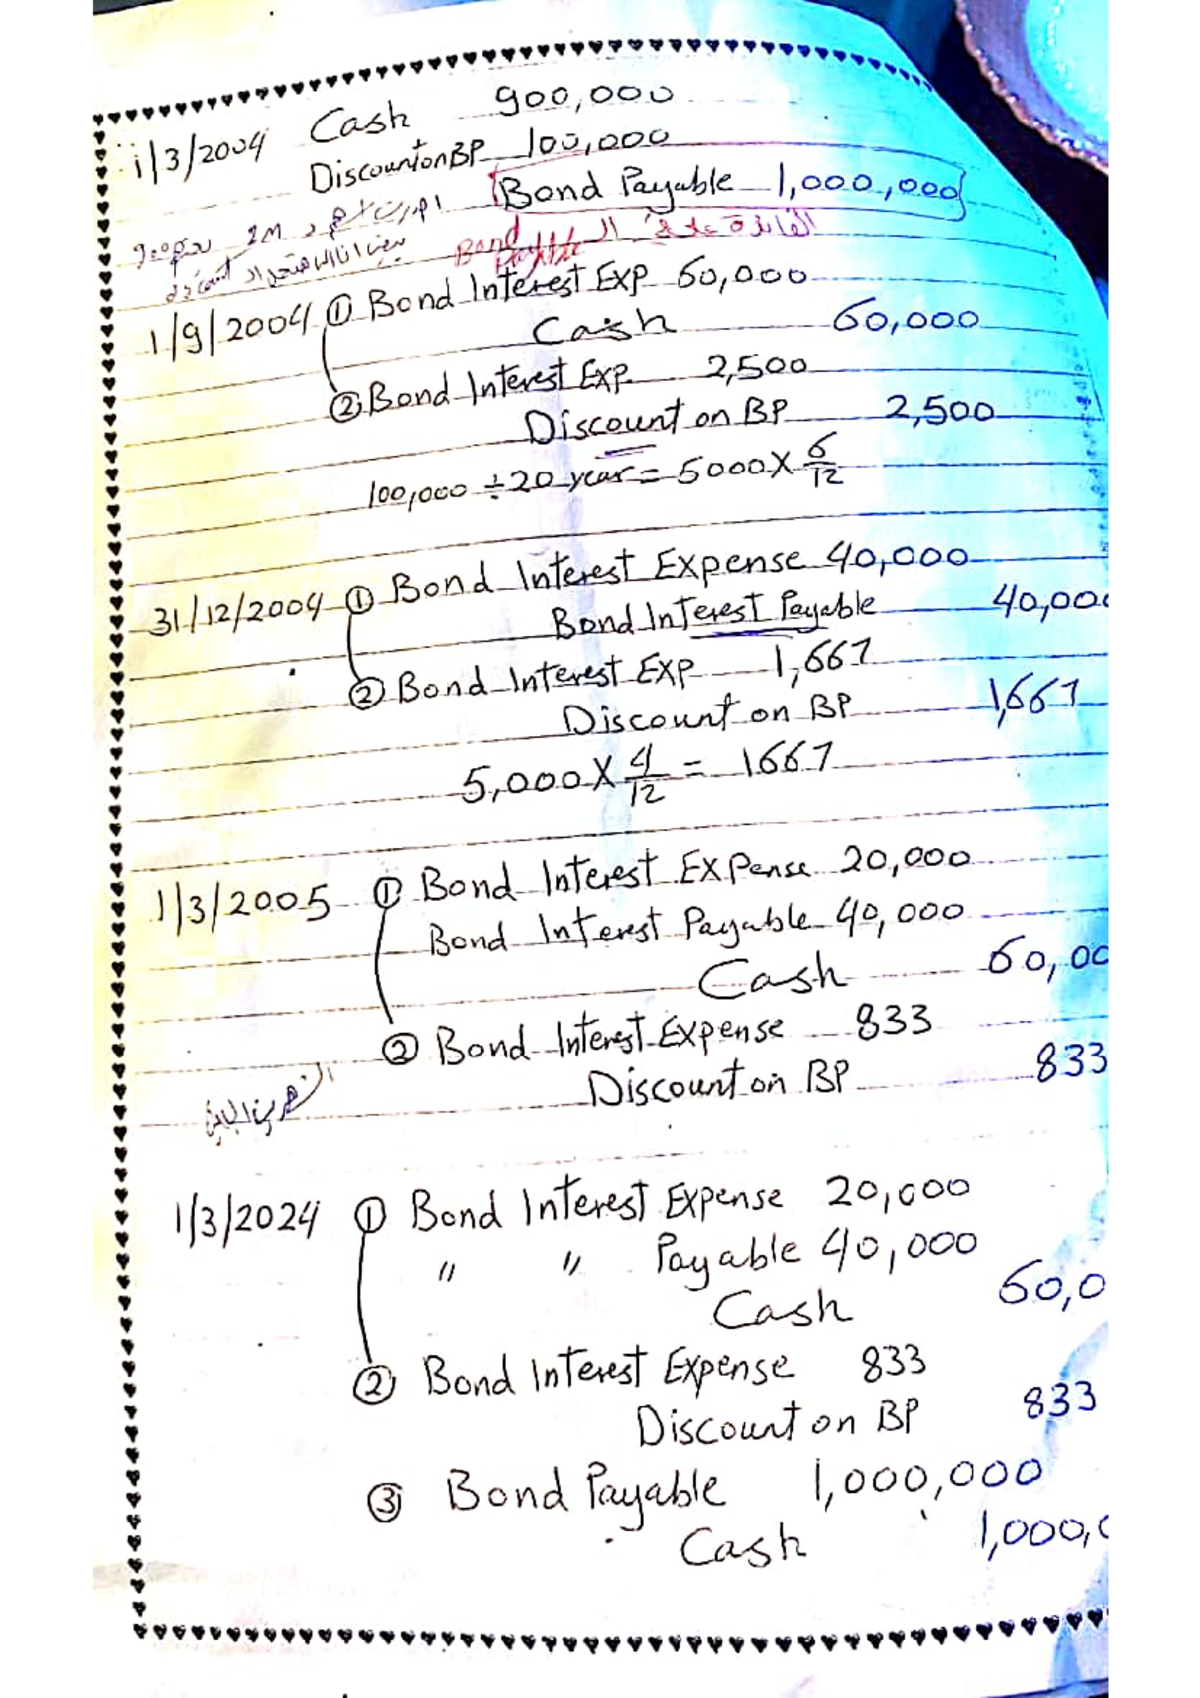 1/3/2004 Cash 900,000
Discount on BP 100,000
Bond Payable 1,000,000
الفائدة على الـ Bond Payable
1/9/2004 ① Bond Interest Exp 60,000
Cash 60,000
② Bond Interest Exp. 2,500
Discount on BP 2,500
100,000 ÷ 20 year = 5000 X 6/12
31/12/2004 ① Bond Interest Expense 40,000
Bond Interest Payable 40,00
② Bond Interest Exp 1,667
Discount on BP 1,667
5,000 X 4/12 = 1667
1/3/2005 ① Bond Interest Expense 20,000
Bond Interest Payable 40,000
Cash 60,00
② Bond Interest Expense 833
Discount on BP 833
1/3/2024 ① Bond Interest Expense 20,000
" " Payable 40,000
Cash 60,0
② Bond Interest Expense 833
Discount on BP 833
③ Bond Payable 1,000,000
Cash 1,000,